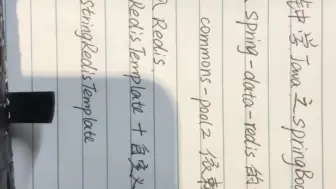 中学Java之SpringBoo
Spring-data-redis的
commons-pool2 依赖
Redis
RedisTemplate + 自定义
StringRedisTemplate